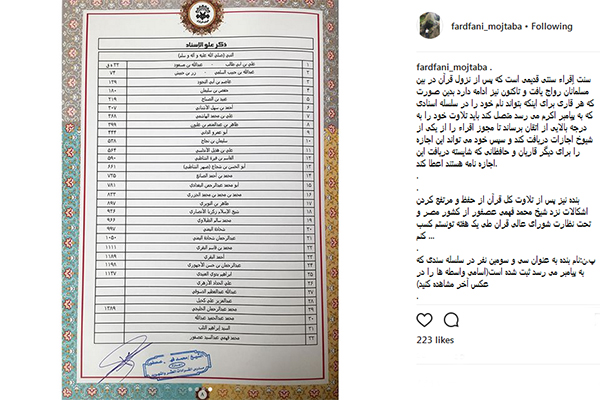 ذكر علو الإسناد
النبي (صلى الله عليه و آله و سلم)
علي بن أبي طالب - عبدالله بن مسعود
عبدالله بن حبيب السلمي - زر بن حبيش ٧٤
عاصم بن أبي النجود ١٢٩ ١
حفص بن سليمان ١٨٠ ٢
عبيد بن الصباح ٢١٩ ٣
أحمد بن سهل الأشناني ٣٠٧ ٤
علي بن محمد الهاشمي ٣٦٨ ٥
طاهر بن عبدالمنعم بن غلبون ٣٩٩ ٦
أبو عمرو الداني ٤٤٤ ٧
سليمان بن نجاح ٨
علي بن هذيل الأندلسي ٥٦٤ ٩
القاسم بن فيرة الشاطبي ٥٩٠ ١٠
أبو الحسن بن شجاع (صهر الشاطبي) ٦٦١ ١١
محمد بن أحمد الصائغ ٧٢٥ ١٢
أبو محمد عبدالرحمن البغدادي ٧٨١ ١٣
محمد بن محمد بن محمد الجزري ٨٣٣ ١٤
طاهر بن النويري ١٥
شيخ الإسلام زكريا الأنصاري ٩٢٦ ١٦
محمد سالم الطبلاوي ٩٦٦ ١٧
شحاذة اليمني ١٨
عبدالرحمن شحاذة اليمني ١٠٥٠ ١٩
محمد بن قاسم البقري ١١١١ ٢٠
أحمد البقري ١١٨٩ ٢١
عبدالرحمن بن حسن الأجهوري ١١٩٨ ٢٢
إبراهيم بدوي العبيدي ٢٣
علي الحداد الأزهري ٢٤
عبدالله عبدالعظيم الدسوقي
عبدالعزيز علي كحيل
محمد عبدالرحمن الخليجي ١٣٨٩
محمد عبدالحميد عبدالله
السيد إبراهيم
محمد فهمي عبدالسيد عصفور
fardfani_mojtaba • Following
fardfani_mojtaba .
سنت إقراء سنتی قدیمی است که پس از نزول قرآن در بین
مسلمانان رواج یافت و تاکنون نیز ادامه دارد بدین صورت
که هر قاری برای اینکه بتواند نام خود را در سلسله اسنادی
که به پیامبر اکرم می رسد متصل کند باید تلاوت خود را به
درجه بالایی از اتقان برساند تا مجوز اقراء را از یکی از
شیوخ اجازات دریافت کند و سپس خود می تواند این اجازه
را برای دیگر قاریان و حافظانی که شایسته دریافت این
اجازه نامه هستند اعطا کند.
.
.
بنده نیز پس از تلاوت کل قرآن از حفظ و مرتفع کردن
اشکالات نزد شیخ محمد فهمی عصفور از کشور مصر و
تحت نظارت شورای عالی قرآن طی یک هفته تونستم کسب
کنم ...
.
پ.ن:نام بنده به عنوان سی و سومین نفر در سلسله سندی که
به پیامبر می رسد ثبت شده است(اسامی واسطه ها را در
عکس آخر مشاهده کنید)
.
223 likes